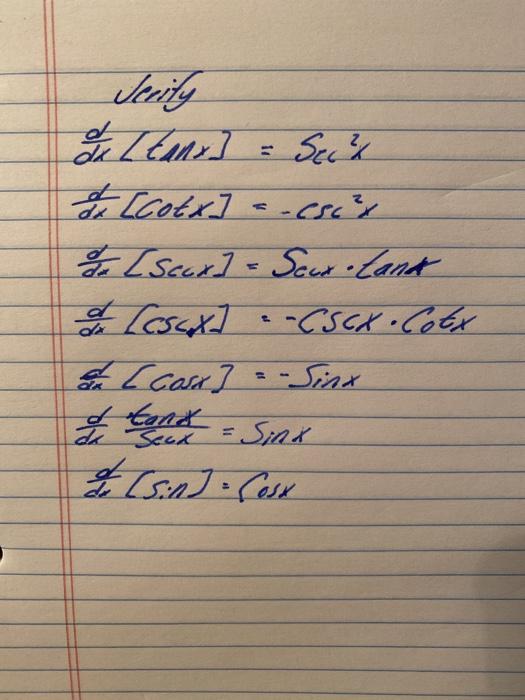 Verify
d/dx [tanx] = Sec²x
d/dx [Cotx] = -csc²x
d/dx [Secx] = Secx · tanx
d/dx [cscx] = -CSCX · Cotx
d/dx [Cosx] = -Sinx
d/dx tanx/Secx = Sinx
d/dx [Sin] = Cosx